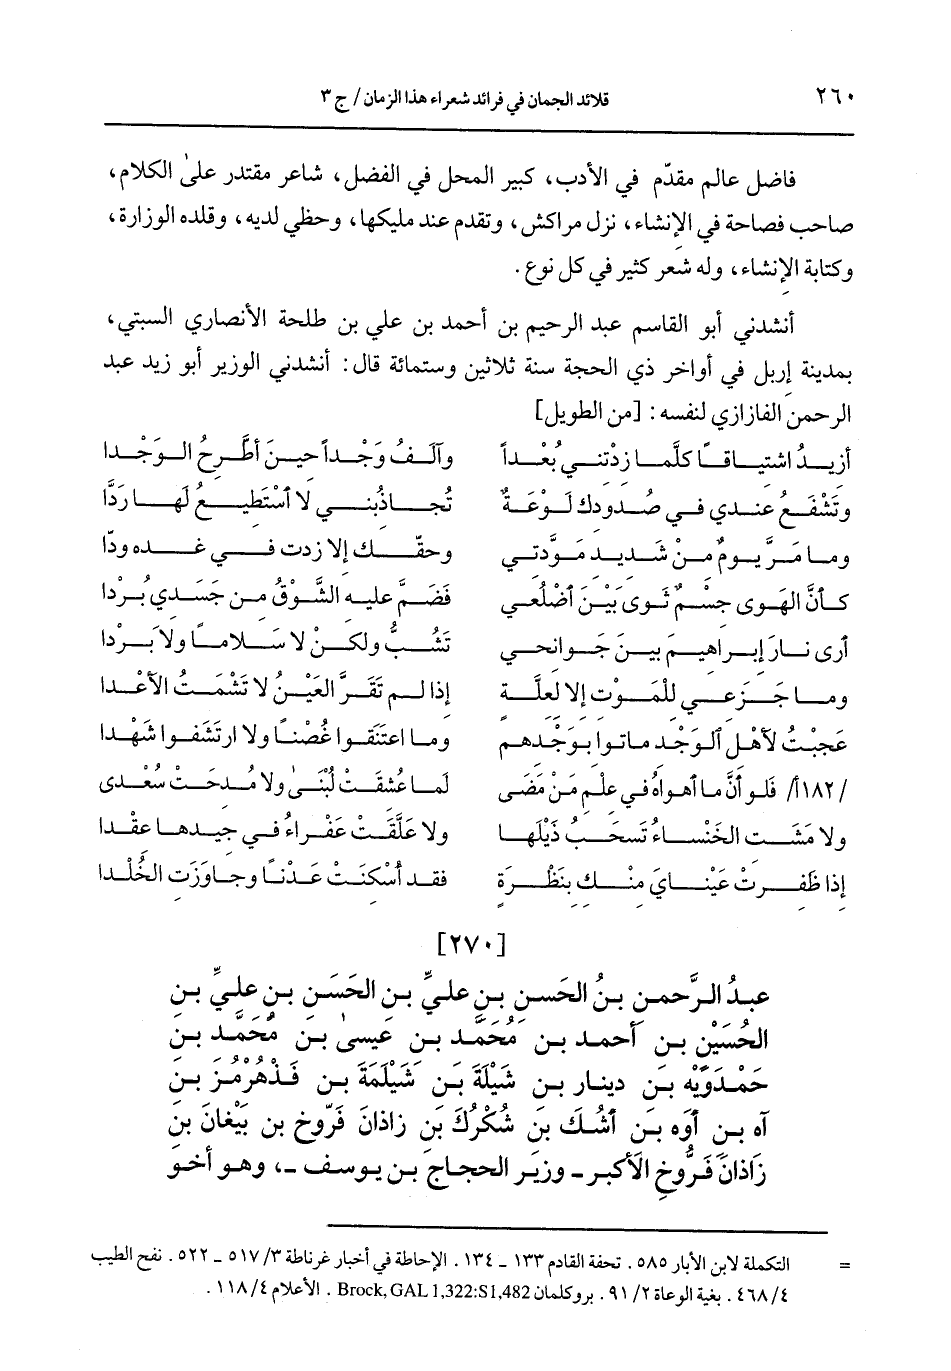 ٢٦٠ قلائد الجمان في فرائد شعراء هذا الزمان/ ج ٣
فاضل عالم مقدّم في الأدب، كبير المحل في الفضل، شاعر مقتدر علىٰ الكلام،
صاحب فصاحة في الإنشاء، نزل مراكش، وتقدم عند مليكها، وحظي لديه، وقلده الوزارة،
وكتابة الإنشاء، وله شعر كثير في كل نوع.
أنشدني أبو القاسم عبد الرحيم بن أحمد بن علي بن طلحة الأنصاري السبتي،
بمدينة إربل في أواخر ذي الحجة سنة ثلاثين وستمائة قال: أنشدني الوزير أبو زيد عبد
الرحمن الفازازي لنفسه: [من الطويل]
أزيدُ اشتياقاً كلَّما زدْتني بُعْداً وآلَفُ وَجْداً حينَ أطَّرحُ الوَجْدا
وتَشْفَعُ عندي في صُدودك لَوْعَةٌ تُجاذبُني لا أسْتطيعُ لها رَدَّا
وما مَرَّ يومٌ منْ شديد مَوَّدتي وحقّك إلا زدت في غده ودّا
كأنَّ الهَوى جسْمٌ ثَوى بَيْنَ أضْلُعي فَضَمَّ عليه الشَّوْقُ من جَسَدي بُرْدا
أرى نارَ إبراهيمَ بينَ جَوانحي تَشُبُّ ولكنْ لا سَلاماً ولا بَرْدا
وما جَزَعي للمَوْت إلا لعلَّة إذا لم تَقَرَّ العَيْنُ لا تَشْمَتُ الأعْدا
عَجبْتُ لأهْل الوَجْد ماتوا بوَجْدهم وما اعتَنَقوا غُصْناً ولا ارتَشَفوا شَهْدا
/١٨٢أ/ فلو أنَّ ما أهواهُ في علم مَنْ مَضَى لما عُشقَتْ لُبْنىٰ ولا مُدحَتْ سُعْدى
ولا مَشَت الخَنْساءُ تَسحَبُ ذَيْلَها ولا علَّقَتْ عَفْراءُ في جيدها عقْدا
إذا ظَفرتْ عَيْنايَ منْك بنَظْرَة فقد أُسْكنَتْ عَدْناً وجاوَزَت الخُلْدا
[٢٧٠]
عبدُ الرَّحمن بنُ الحَسن بن عليِّ بن الحَسَن بن عليِّ بن
الحُسَيْن بن أحمد بن مُحَمَّد بن عيسى بن مُحَمَّد بن
حَمْدَوَيْه بن دينار بن شَيْلَةَ بن شَيْلَمَةَ بن فَذْهُرمُزَ بن
آه بن أوَه بن أشُك بن شُكْرُكَ بن زاذانَ فَرّوخ بن بَيْغانَ بن
زَاذَانَ فَرُّوخ الأكبر - وزير الحجاج بن يوسف -، وهو أخو
= التكملة لابن الأبار ٥٨٥. تحفة القادم ١٣٣ - ١٣٤. الإحاطة في أخبار غرناطة ٣/ ٥١٧ - ٥٢٢. نفح الطيب
٤/ ٤٦٨. بغية الوعاة ٢/ ٩١. بروكلمان Brock, GAL 1,322:S1,482. الأعلام ٤/ ١١٨.